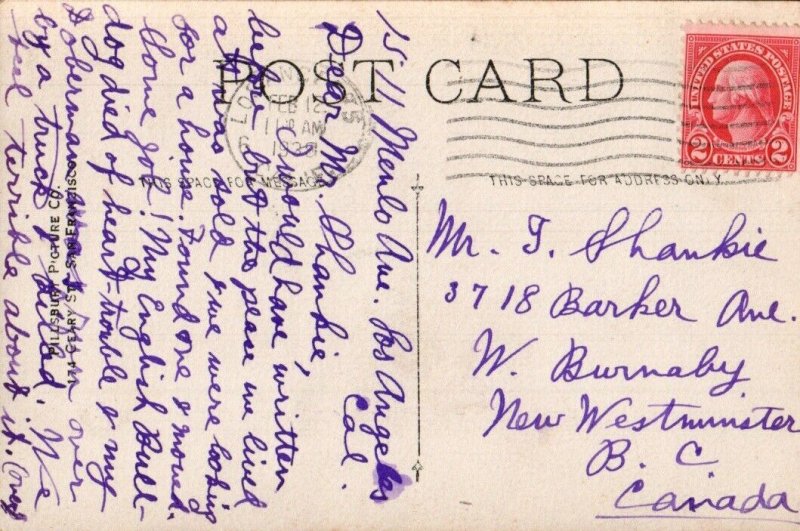 POST CARD
THIS SPACE FOR ADDRESS ONLY
UNITED STATES POSTAGE
2 CENTS 2
FEB 12
11 AM
15-11 Menlo Ave. Los Angeles
Cal.
Dear Mr. Shankie,
I would have written
before but the place we lived
at was sold & we were looking
for a house. Found one & moved.
Thorne Joe! My English Bull-
dog died of heart-trouble & my
Doberman run over
by a truck & killed. We
feel terrible about it. (over)
PILLSBURY PICTURE CO.
GEARY ST. SAN FRANCISCO
Mr. J. Shankie
3718 Barker Ave.
W. Burnaby
New Westminster
B. C
Canada